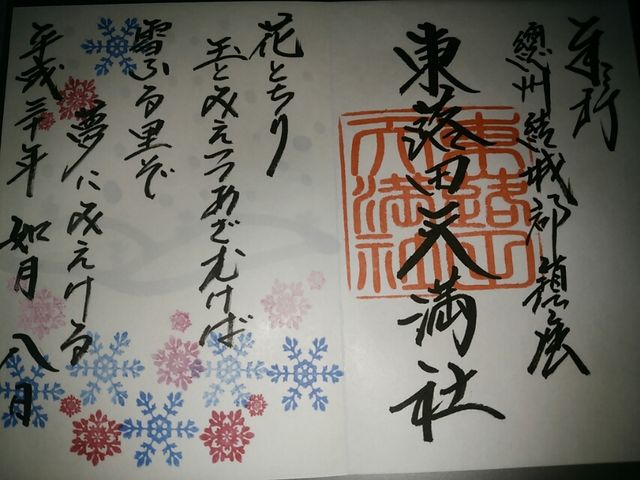 奉拝
總州結城郡鎮座
東蕗田天満社
花とちり
玉とみえつつあざむけば
雪ふる里ぞ
夢にみえける
平成三十年 如月 八日